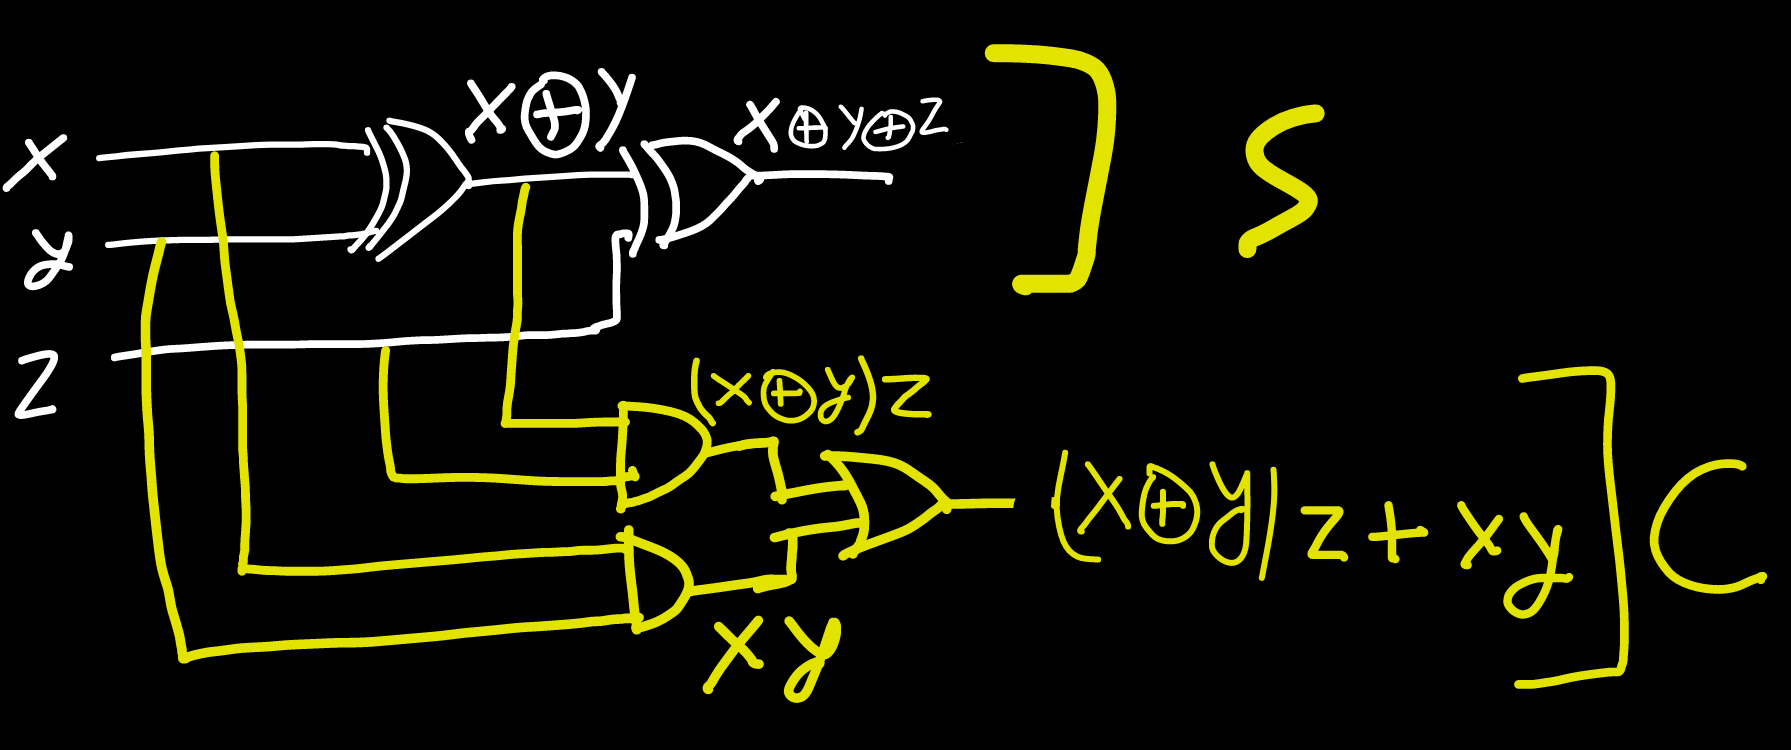 x
y
z
x⊕y
x⊕y⊕z
S
(x⊕y)z
xy
(x⊕y)z+xy
C